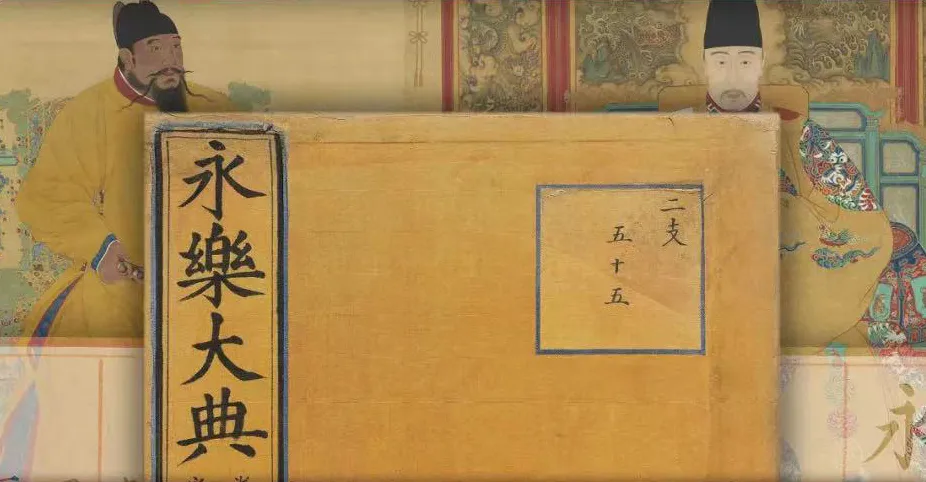 永樂大典
二支
五十五
永